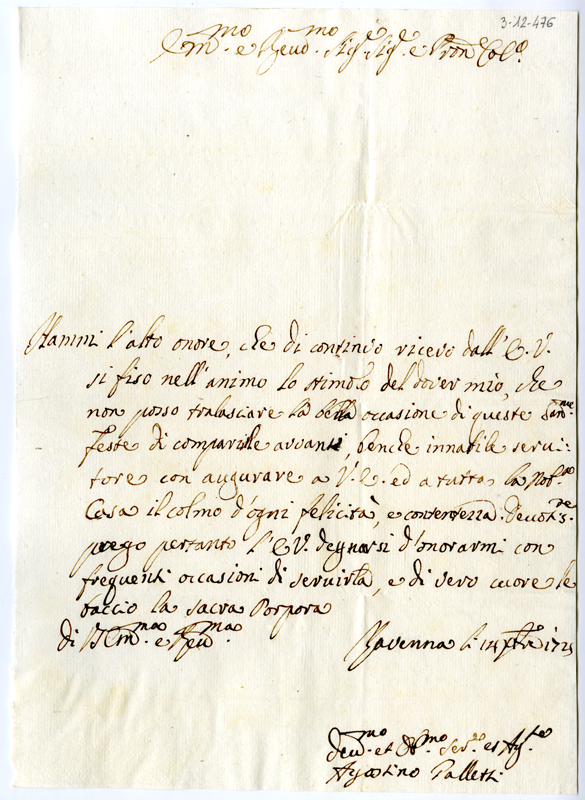 3-12-476
Em.mo e Reud.mo Sig.e Sig.e e Pron Col.o
Hammi l'alto onore, che di continuo ricevo dall'E. V.
si fiso nell'animo lo stimolo del dover mio, che
non posso tralasciare la bella occasione di queste
feste di comparirle avvanti, benche innabile servi-
tore con augurare a V. E. ed a tutta la Nob.ma
Casa il colmo d'ogni felicità, e contentezza.
prego pertanto l'E V. degnarsi d'onorarmi con
frequenti occasioni di servirla, e di vero cuore le
baccio la sacra Porpora
di V Em.ma e Reu.ma
Ravenna li 14 Xbre 1725
Deu.mo et Ob.mo Ser.re et
Agostino Galletti